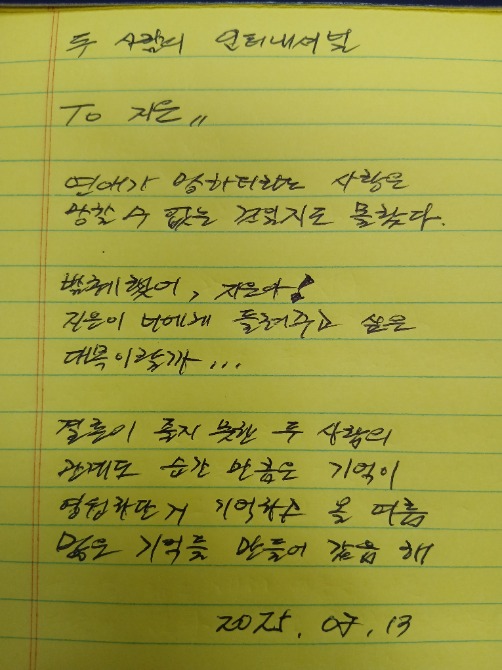 두 사람의 인터내셔널
To 지은,,
연애가 망하더라도 사랑은
망할 수 없는 건일지도 몰랐다.
발췌했어, 지은아!
지은이 너에게 들려주고 싶은
대목이랄까...
결론이 좋지 못한 두 사람의
관계도 순간 만큼은 기억이
영원하단 거 기억하고 올 여름
많은 기억들 만들어 갔음 해
2025. 07. 13